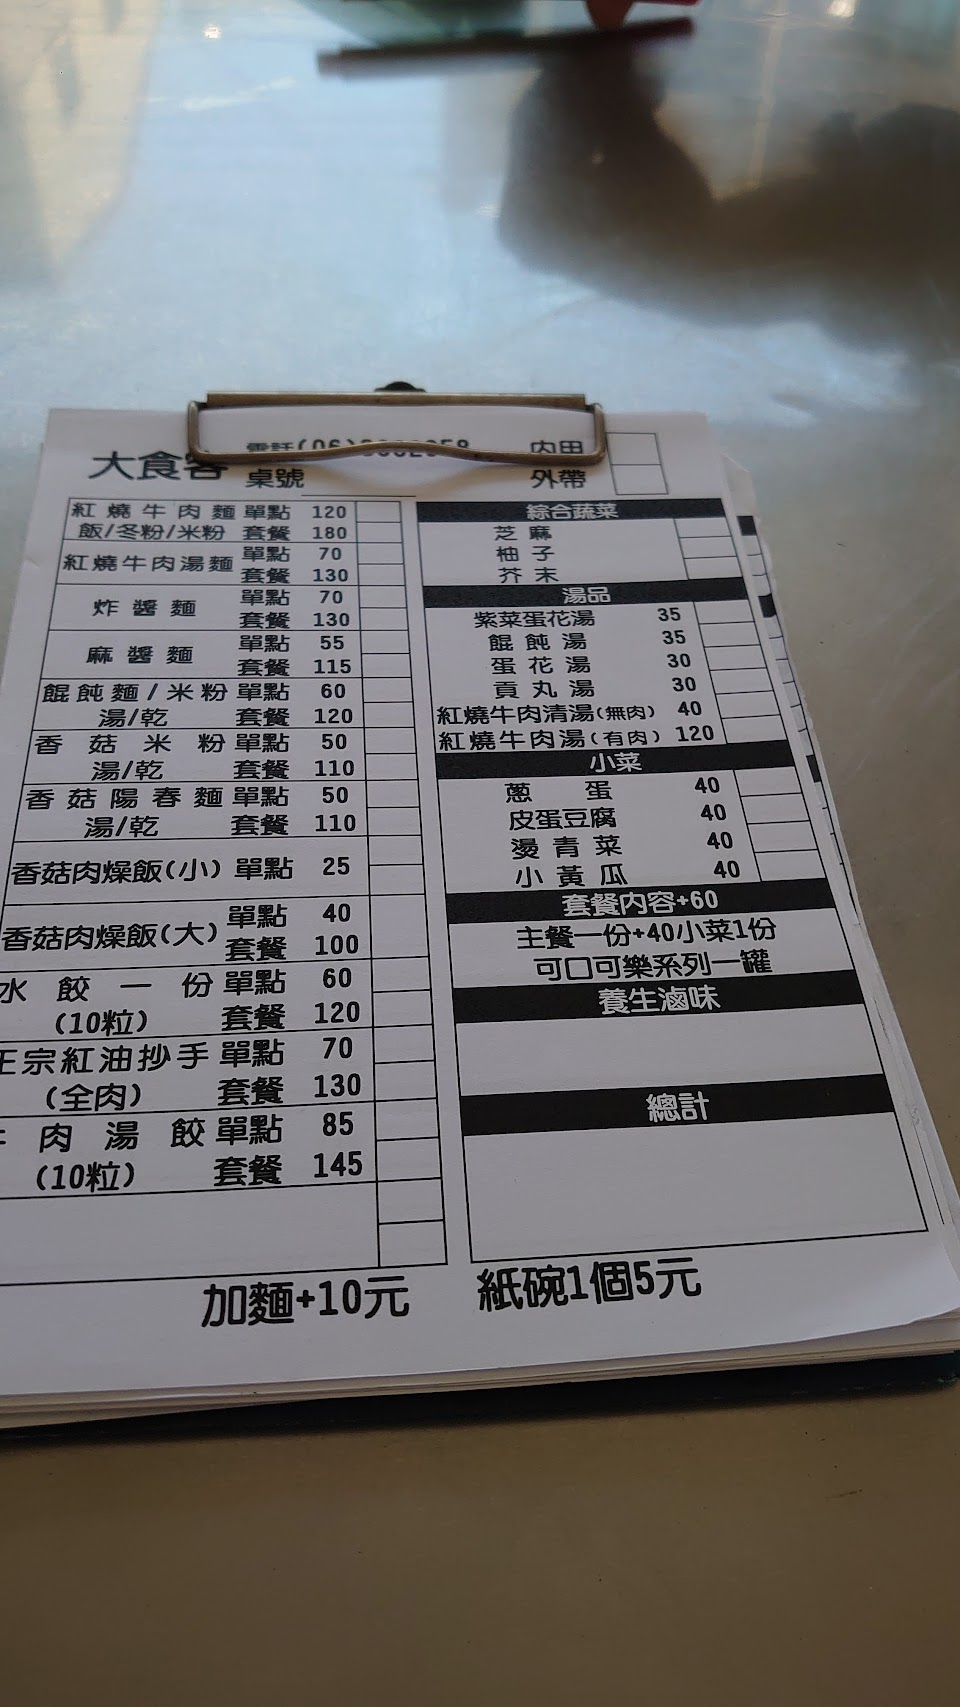 大食客
電話(06)
桌號
內用
外帶
紅燒牛肉麵 單點 120
飯/冬粉/米粉 套餐 180
紅燒牛肉湯麵 單點 70
套餐 130
炸醬麵 單點 70
套餐 130
麻醬麵 單點 55
套餐 115
餛飩麵/米粉 單點 60
湯/乾 套餐 120
香菇米粉 單點 50
湯/乾 套餐 110
香菇陽春麵 單點 50
湯/乾 套餐 110
香菇肉燥飯(小) 單點 25
香菇肉燥飯(大) 單點 40
套餐 100
水餃一份 單點 60
(10粒) 套餐 120
正宗紅油抄手 單點 70
(全肉) 套餐 130
牛肉湯餃 單點 85
(10粒) 套餐 145
綜合蔬菜
芝麻
柚子
芥末
湯品
紫菜蛋花湯 35
餛飩湯 35
蛋花湯 30
貢丸湯 30
紅燒牛肉清湯(無肉) 40
紅燒牛肉湯(有肉) 120
小菜
蔥蛋 40
皮蛋豆腐 40
燙青菜 40
小黃瓜 40
套餐內容+60
主餐一份+40小菜1份
可口可樂系列一罐
養生滷味
總計
加麵+10元
紙碗1個5元